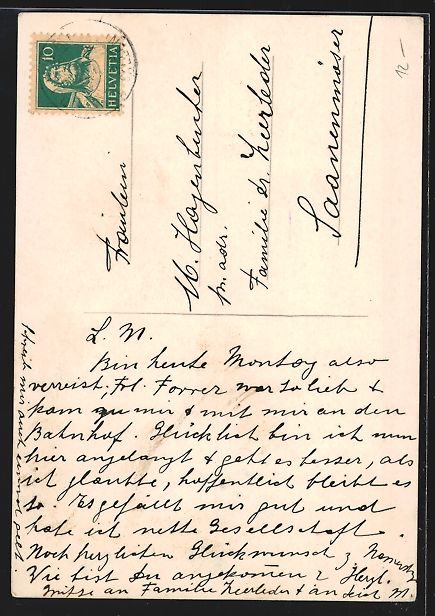 10
HELVETIA
12 —
Fräulein
M. Hagenbucher
p. adr.
Familie Dr. Zeerleder
Saanenmöser
L. M.
Bin heute Montag also
verreist, Frl. Forrer war so lieb &
kam zu mir & mit mir an den
Bahnhof. Glücklich bin ich nun
hier angelangt & geht es besser, als
ich glaubte, hoffentlich bleibt es
so. Es gefällt mir gut und
habe ich nette Gesellschaft.
Noch herzlichen Glückwunsch z. Namenstg
Wie bist Du angekommen? Herzl.
Grüsse an Familie Zeerleder & an Dich M.
Schreib mir auch einmal gelt